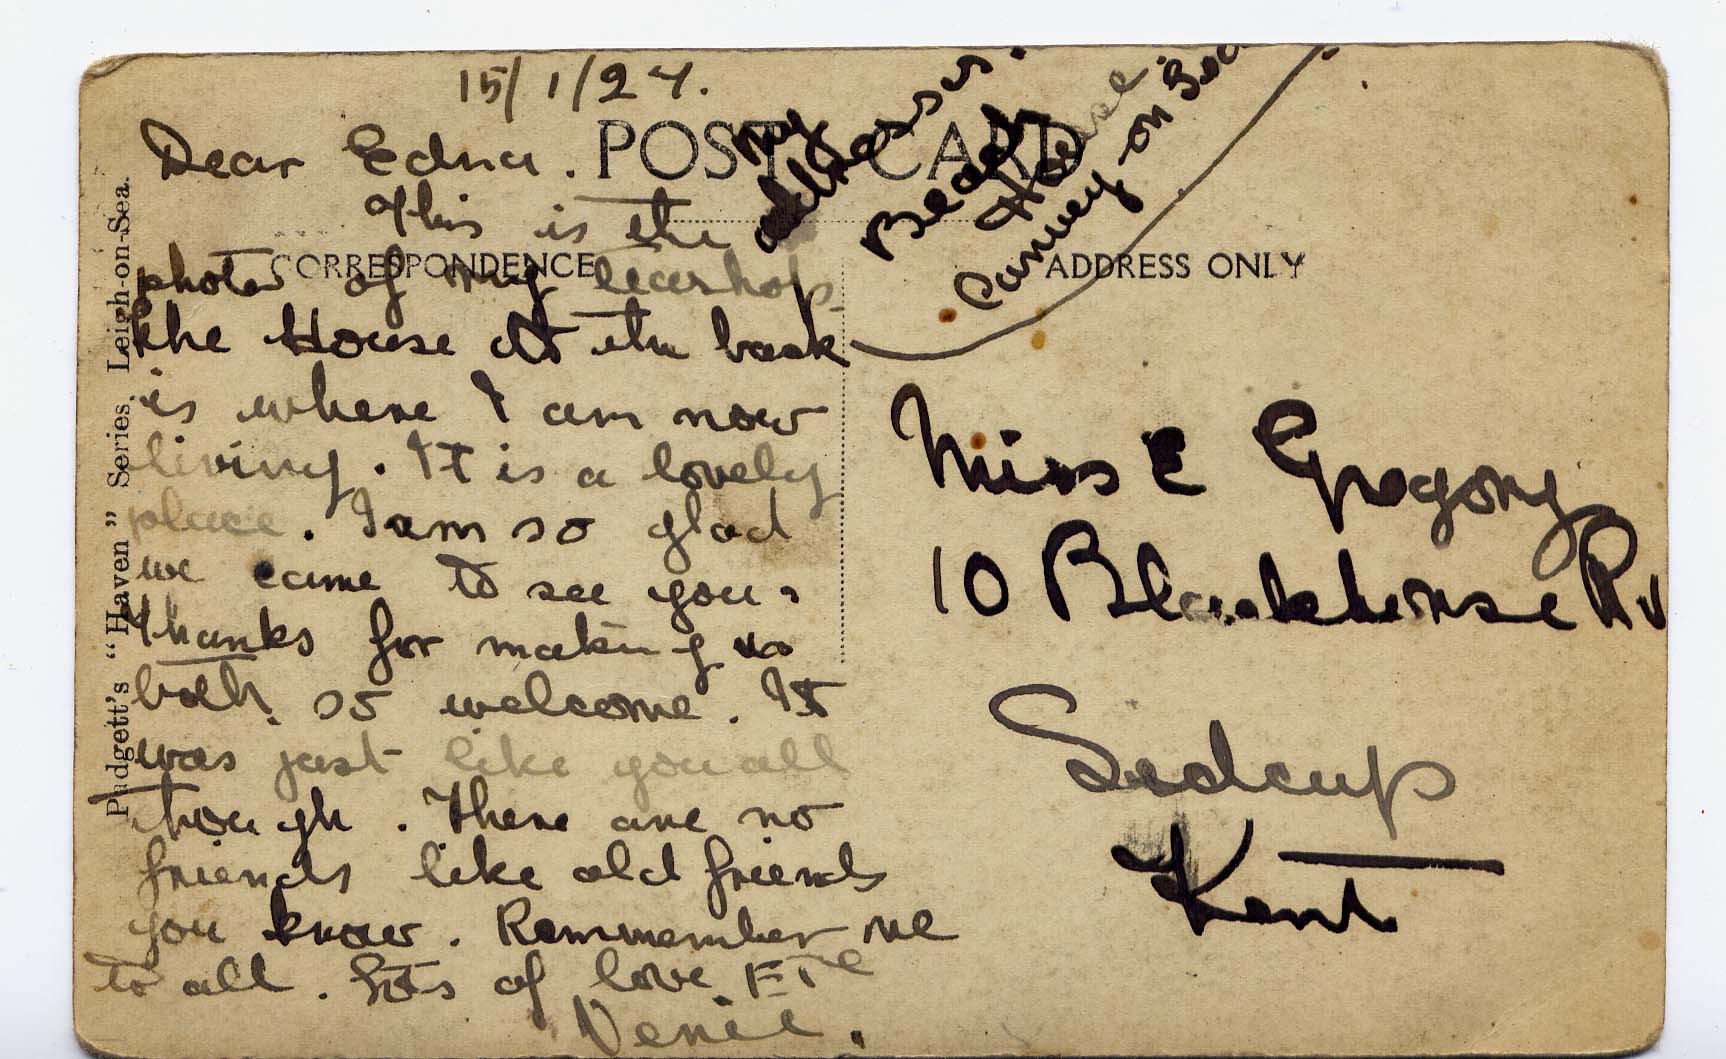 15/1/27.
my
address is.
Beach
House.
Canvey-on Sea
POST CARD
CORRESPONDENCE
ADDRESS ONLY
Padgett's "Haven" Series. Leigh-on-Sea.
Dear Edna.
This is the
photo of my teashop
the House at the back
is where I am now
living. It is a lovely
place. I am so glad
we came to see you.
thanks for making us
both so welcome. It
was just like you all
though. There are no
friends like old friends
you know. Remmember me
to all. Lots of love. ETC
Venie.
Miss E Gregory
10 Blackhorse Rd
Sidcup
Kent